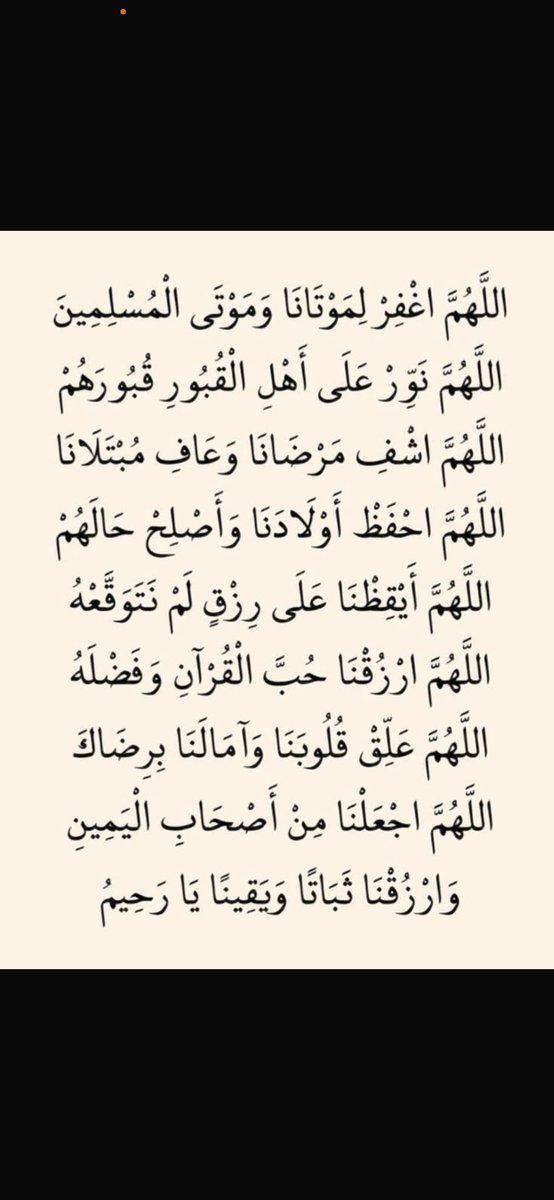 اللَّهُمَّ اغْفِرْ لِمَوْتَانَا وَمَوْتَى الْمُسْلِمِينَ
اللَّهُمَّ نَوِّرْ عَلَى أَهْلِ الْقُبُورِ قُبُورَهُمْ
اللَّهُمَّ اشْفِ مَرْضَانَا وَعَافِ مُبْتَلَانَا
اللَّهُمَّ احْفَظْ أَوْلَادَنَا وَأَصْلِحْ حَالَهُمْ
اللَّهُمَّ أَيْقِظْنَا عَلَى رِزْقٍ لَمْ نَتَوَقَّعْهُ
اللَّهُمَّ ارْزُقْنَا حُبَّ الْقُرْآنِ وَفَضْلَهُ
اللَّهُمَّ عَلِّقْ قُلُوبَنَا وَآمَالَنَا بِرِضَاكَ
اللَّهُمَّ اجْعَلْنَا مِنْ أَصْحَابِ الْيَمِينِ
وَارْزُقْنَا ثَبَاتًا وَيَقِينًا يَا رَحِيمُ